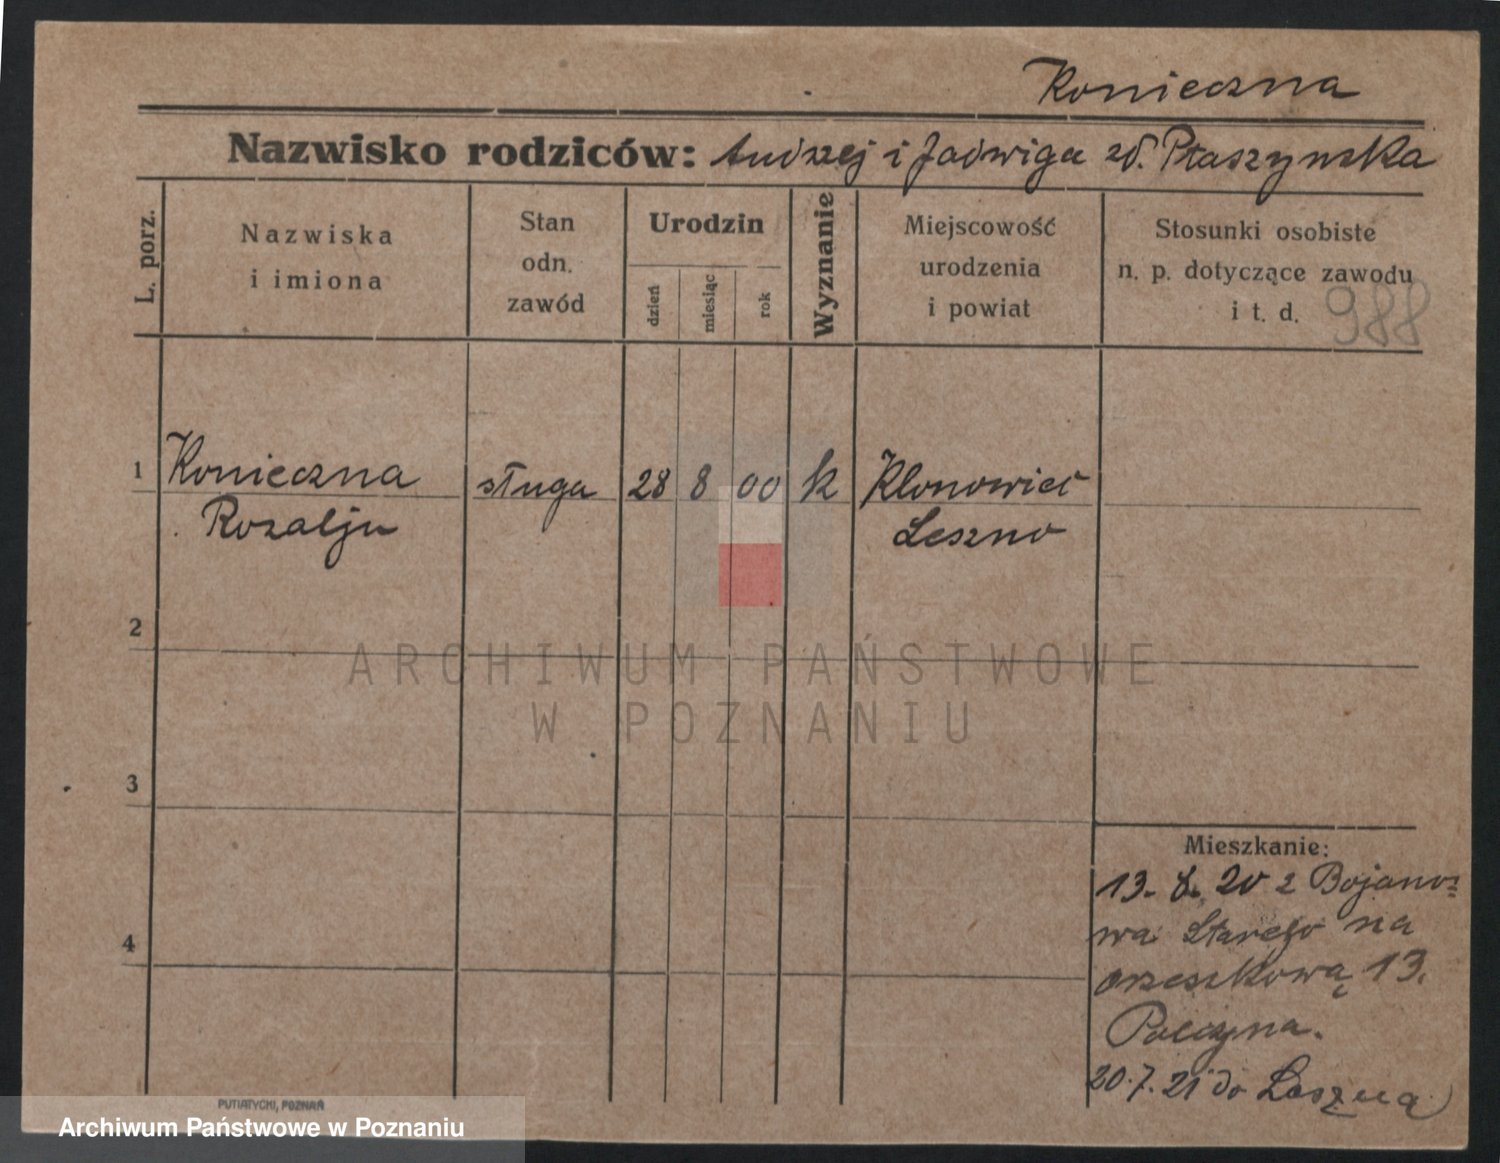 Konieczna
Nazwisko rodziców: Andrzej i Jadwiga zd. Ptaszynska
L. porz.
Nazwiska
i imiona
Stan
odn.
zawód
Urodzin
dzień
miesiąc
rok
Wyznanie
Miejscowość
urodzenia
i powiat
Stosunki osobiste
n. p. dotyczące zawodu
i t. d.
988
1
Konieczna
Rozalja
sługa
28 8 00
k
Klonowiec
Leszno
2
ARCHIWUM PAŃSTWOWE
W POZNANIU
3
4
Mieszkanie:
13. 8. 20 z Bojano=
wa Starego na
orzeszkową 13.
20.7.21 do Leszna
PUTIATYCKI, POZNAŃ
Archiwum Państwowe w Poznaniu